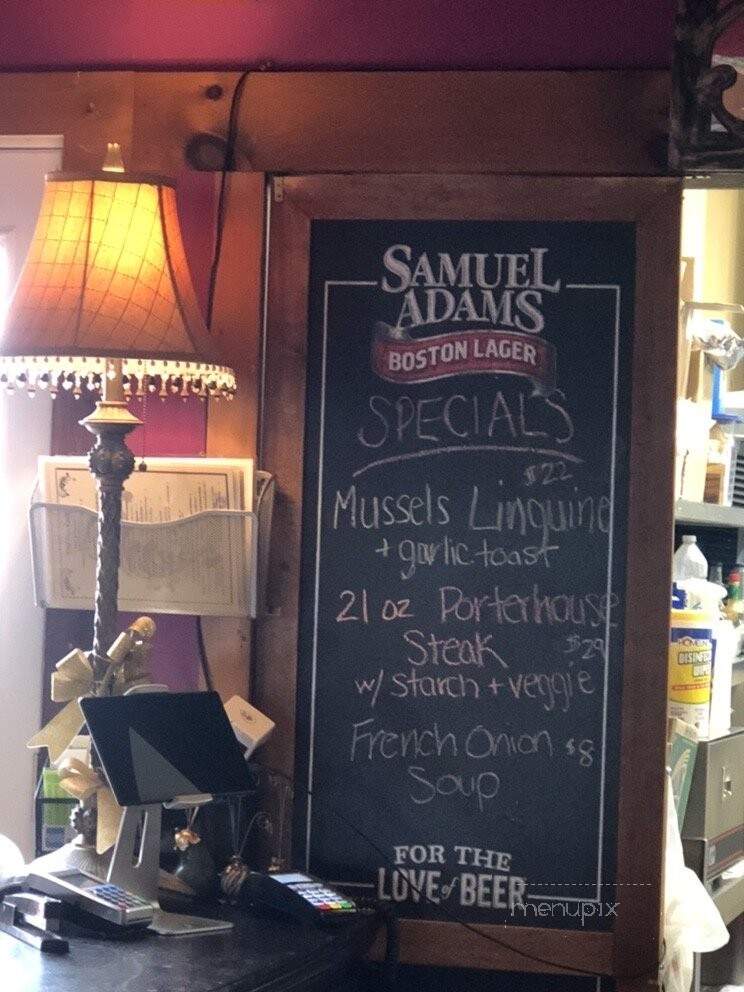 SAMUEL
ADAMS
BOSTON LAGER
SPECIALS
$22
Mussels Linguine
+ garlic toast
21 oz Porterhouse
Steak $29
w/ starch + veggie
French Onion $8
Soup
FOR THE
LOVE of BEER
menupix
DISINFE
WIPES